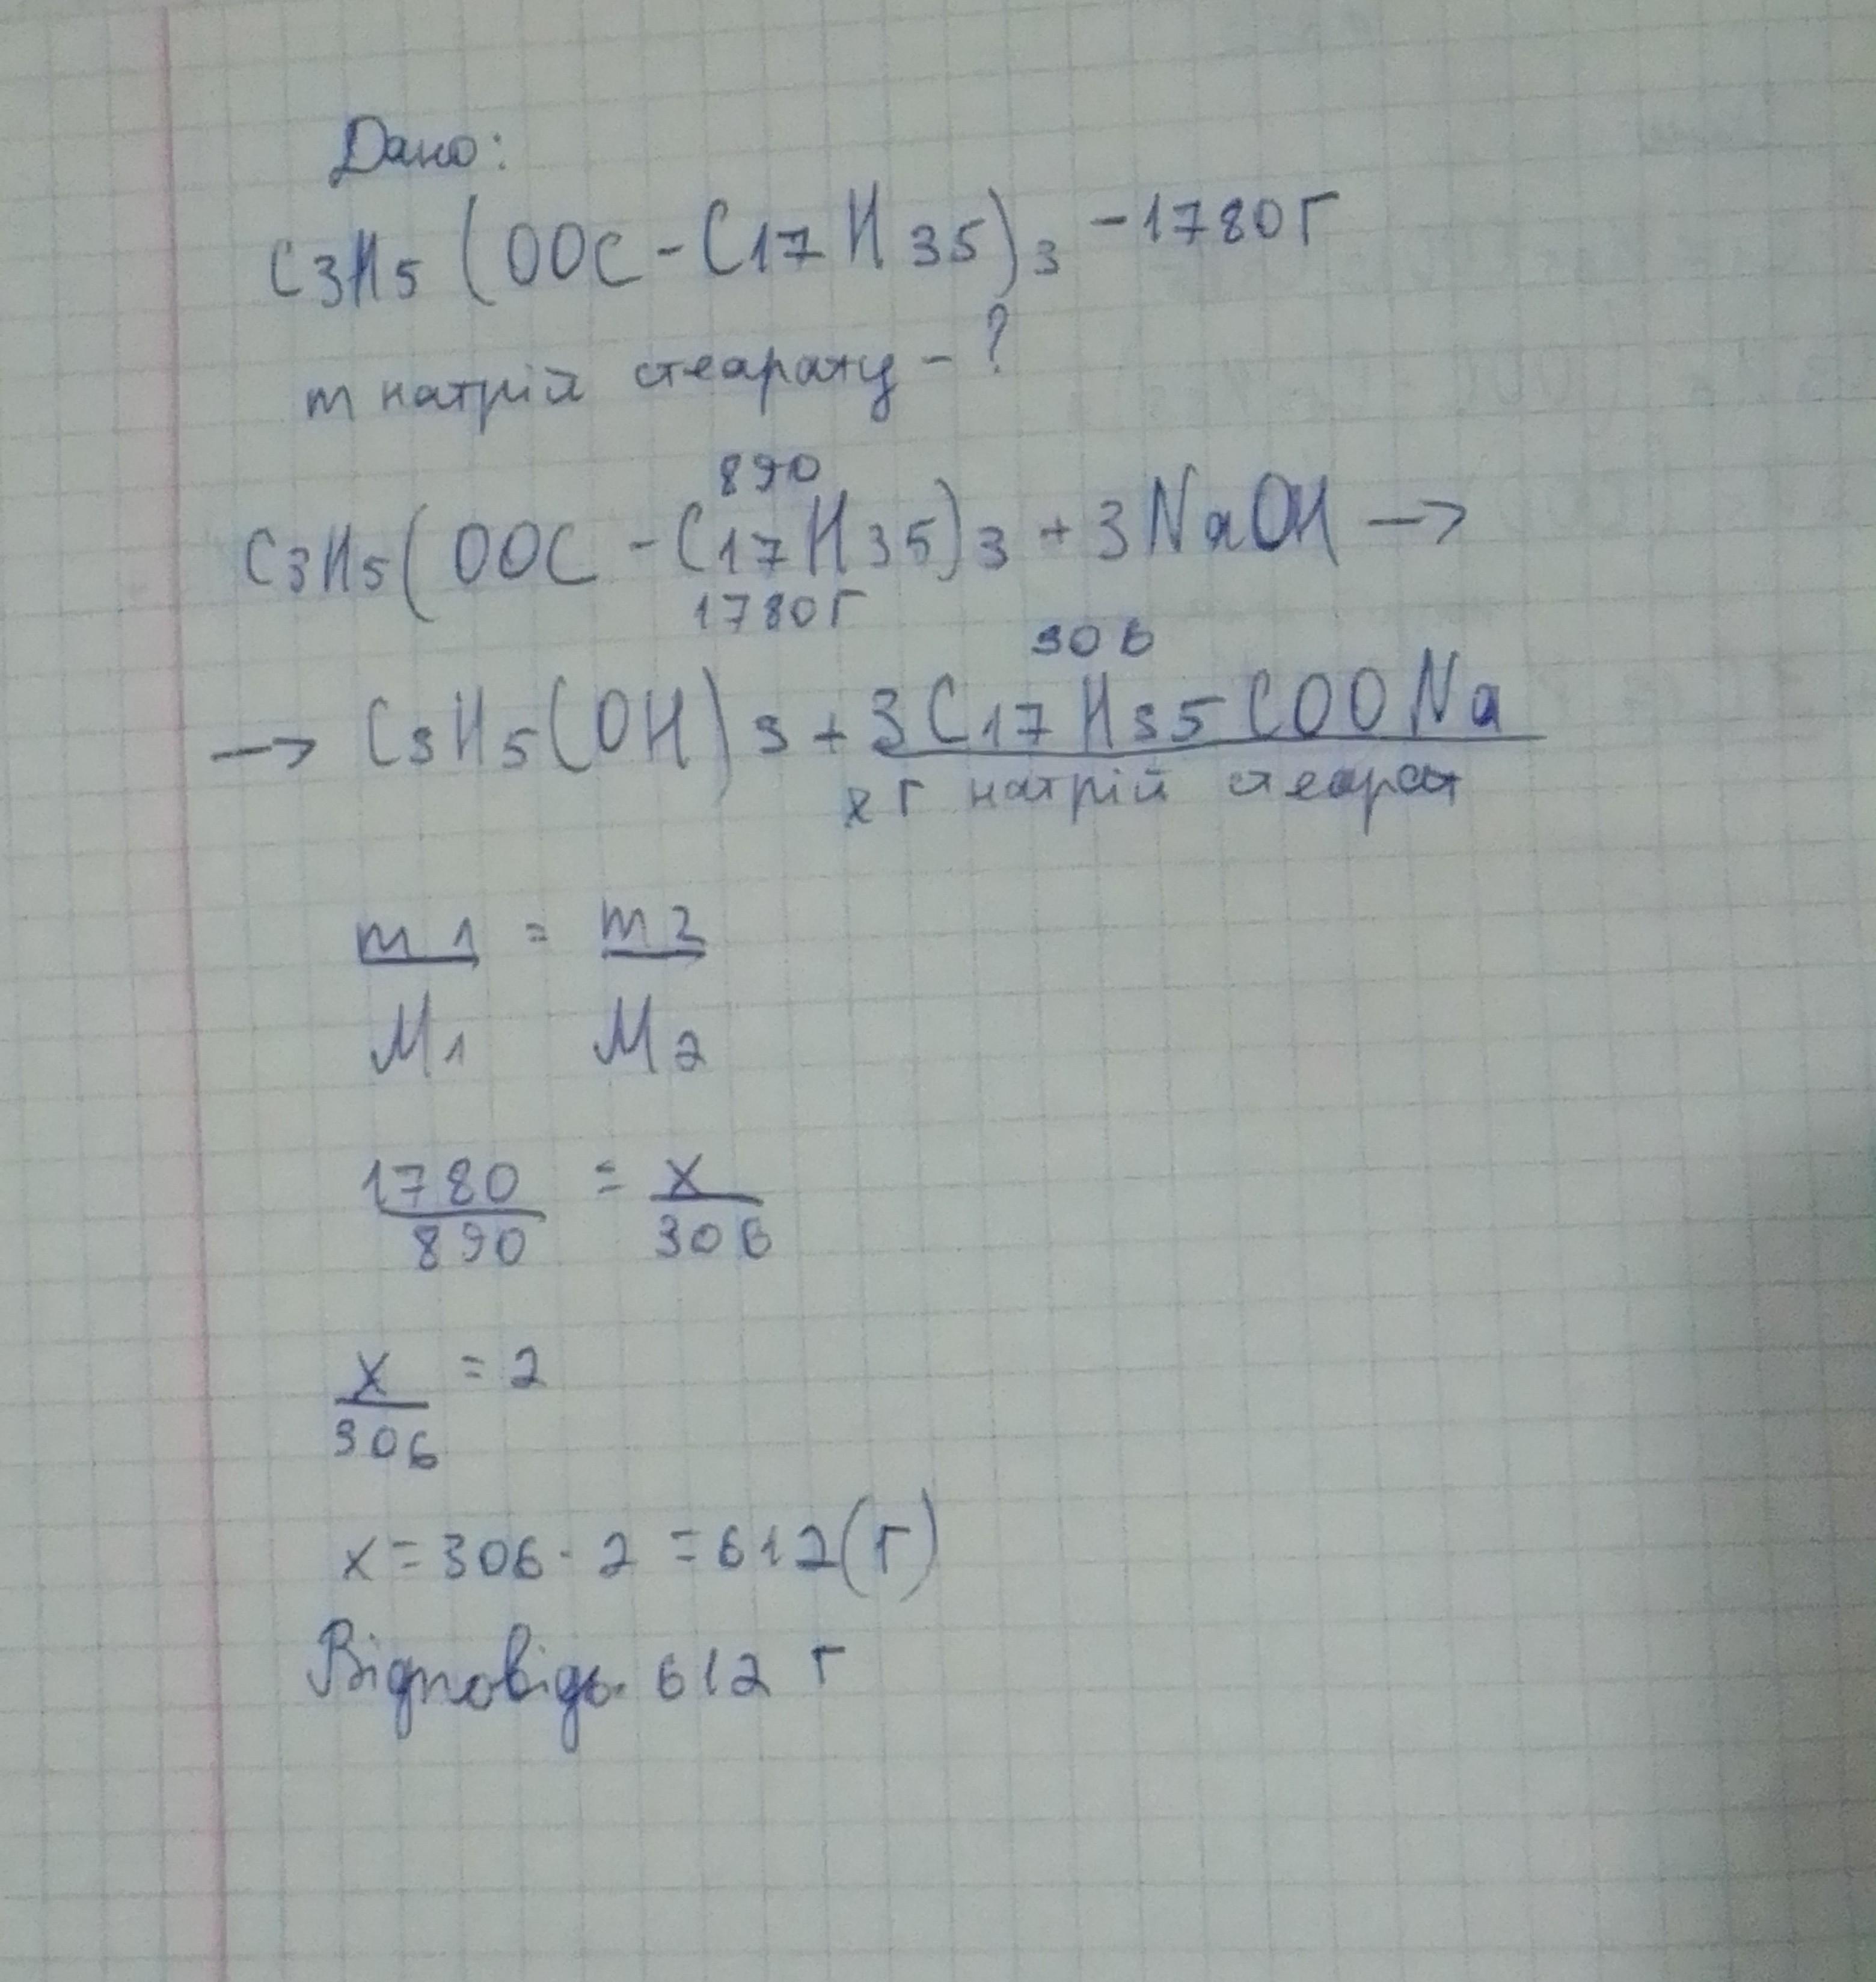 Дано:
C3H5(OOC-C17H35)3 - 1780г
m натрій стеарату - ?
890
C3H5(OOC-C17H35)3 + 3NaOH →
1780г
306
→ C3H5(OH)3 + 3C17H35COONa
x г натрій стеарат
m1 = m2
M1 M2
1780 = x
890 306
x = 2
306
x = 306 · 2 = 612 (г)
Відповідь. 612 г